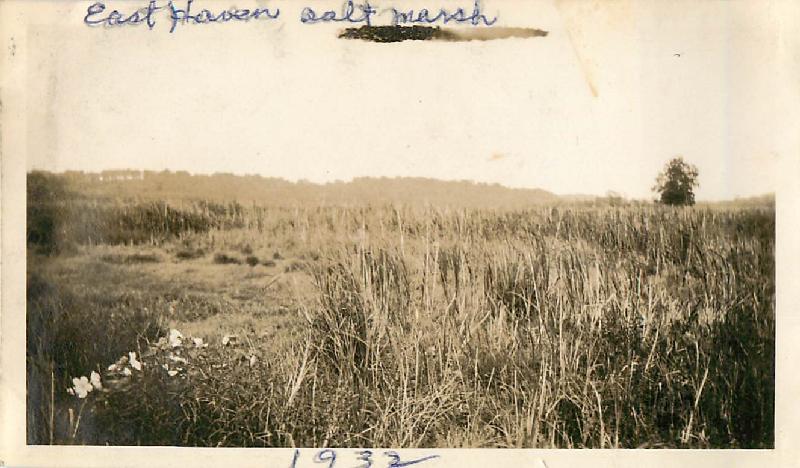 East Haven salt marsh
1932